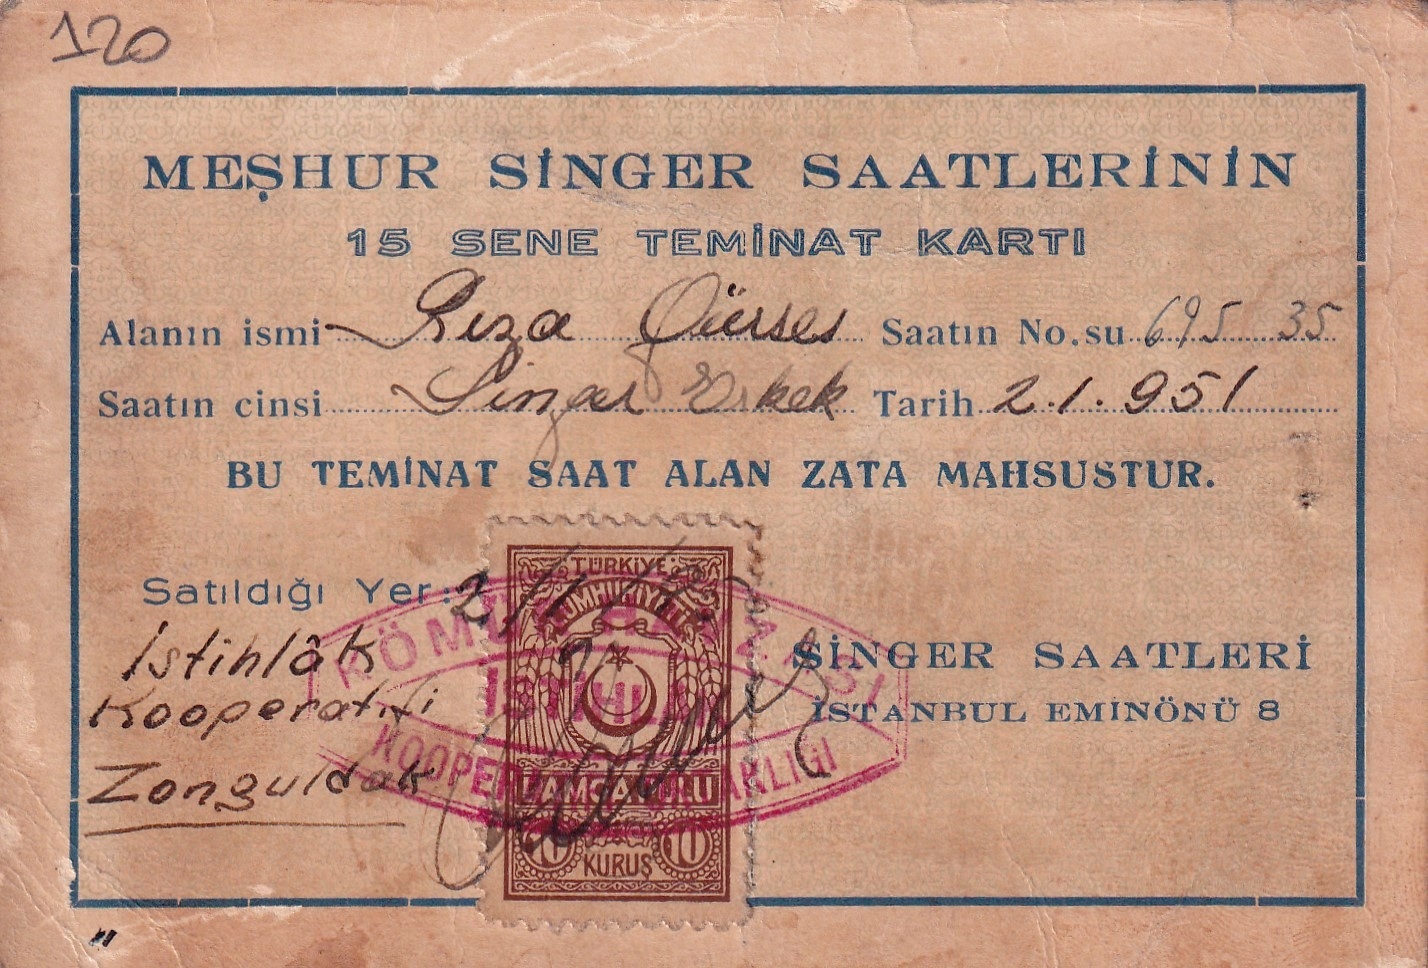 120
MEŞHUR SİNGER SAATLERİNİN
15 SENE TEMİNAT KARTI
Alanın ismi Rıza Gürses Saatın No.su 695 35
Saatın cinsi Singer Erkek Tarih 2.1.951
BU TEMİNAT SAAT ALAN ZATA MAHSUSTUR.
Satıldığı Yer:
İstihlâk
Kooperatifi
Zonguldak
TÜRKİYE
CUMHURİYETİ
DAMGA PULU
10 10
KURUŞ
KÖMÜR HAVZASI
İSTİHLÂK
SİNGER SAATLERİ
İSTANBUL EMİNÖNÜ 8